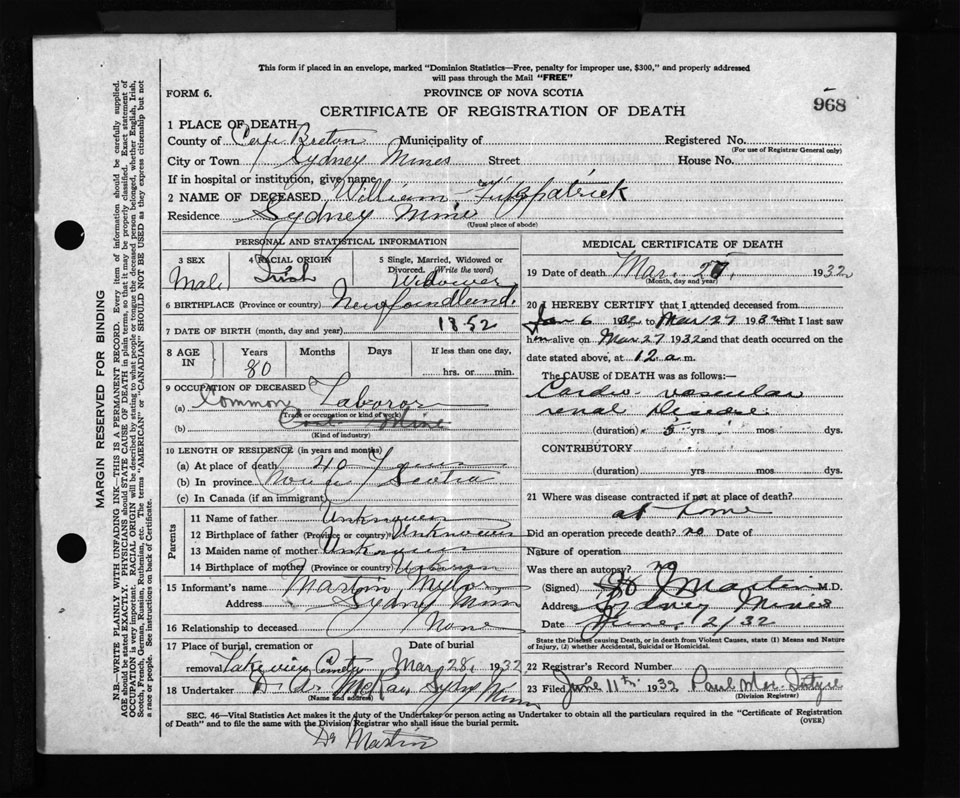 This form if placed in an envelope, marked "Dominion Statistics—Free, penalty for improper use, $300," and properly addressed
will pass through the Mail "FREE"
FORM 6.
PROVINCE OF NOVA SCOTIA
968
CERTIFICATE OF REGISTRATION OF DEATH
1 PLACE OF DEATH
County of Cape Breton Municipality of Registered No.
(For use of Registrar General only)
City or Town Sydney Mines Street House No.
If in hospital or institution, give name
2 NAME OF DECEASED William Fitzpatrick
Residence Sydney Mines
(Usual place of abode)
PERSONAL AND STATISTICAL INFORMATION
3 SEX Male
4 RACIAL ORIGIN Irish
5 Single, Married, Widowed or Divorced. (Write the word) Widower
6 BIRTHPLACE (Province or country) Newfoundland.
7 DATE OF BIRTH (month, day and year) 1852
8 AGE IN Years Months Days If less than one day,
80 hrs. or min.
9 OCCUPATION OF DECEASED
(a) Common Laboror
(Trade or occupation or kind of work)
(b) Coal Mine
(Kind of industry)
10 LENGTH OF RESIDENCE (in years and months)
(a) At place of death 40 Years
(b) In province Nova Scotia
(c) In Canada (if an immigrant)
Parents
11 Name of father Unknown
12 Birthplace of father (Province or country) Unknown
13 Maiden name of mother Unknown
14 Birthplace of mother (Province or country) Unknown
15 Informant's name Martin
Address Sydney Mines
16 Relationship to deceased None
17 Place of burial, cremation or Date of burial
removal Lakeview Mar 28, 1932
18 Undertaker D. A. McRae Sydney Mines
(Name and address)
MEDICAL CERTIFICATE OF DEATH
19 Date of death Mar. 27, 1932
(Month, day and year)
20 I HEREBY CERTIFY that I attended deceased from
Jan 6 1932 to Mar 27 1932 that I last saw
him alive on Mar 27 1932 and that death occurred on the
date stated above, at 12 a.m.
The CAUSE of DEATH was as follows:—
Cardio vascular
renal Disease.
(duration) 5 yrs mos dys.
CONTRIBUTORY
(duration) yrs mos dys.
21 Where was disease contracted if not at place of death?
at home
Did an operation precede death? no Date of
Nature of operation
Was there an autopsy? no
(Signed) Martin M.D.
Address Sydney Mines
Date June, 2/32
State the Disease causing Death, or in death from Violent Causes, state (1) Means and Nature
of Injury, (2) whether Accidental, Suicidal or Homicidal.
22 Registrar's Record Number
23 Filed June 11th. 1932 Paul Mac Intyre
(Division Registrar)
SEC. 46—Vital Statistics Act makes it the duty of the Undertaker or person acting as Undertaker to obtain all the particulars required in the "Certificate of Registration
of Death" and to file the same with the Division Registrar who shall issue the burial permit.
(OVER)
Dr Martin
MARGIN RESERVED FOR BINDING
N.B. WRITE PLAINLY WITH UNFADING INK—THIS IS A PERMANENT RECORD. Every item of information should be carefully supplied.
AGE should be stated EXACTLY. PHYSICIANS should STATE CAUSE OF DEATH in plain terms, so that it may be properly classified. Exact statement of
OCCUPATION is very important. RACIAL ORIGIN will be described by stating to what people or tongue the deceased person belonged, whether English, Irish,
Scotch, French, German, Russian, Ruthenian, etc. The terms "AMERICAN" or "CANADIAN" SHOULD NOT BE USED as they express citizenship but not
a race or people. See instructions on back of Certificate.